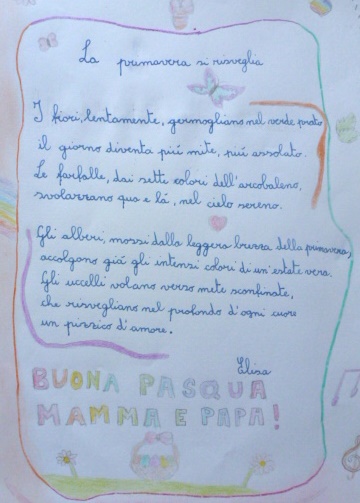 La primavera si risveglia
I fiori, lentamente, germogliano nel verde prato
il giorno diventa piú mite, piú assolato.
Le farfalle, dai setti colori dell'arcobaleno,
svolazzano qua e lá, nel cielo sereno.
Gli alberi, mossi dalla leggera brezza della primavera,
accolgono giá gli intensi colori di un'estate vera.
Gli uccelli volano verso mete sconfinate,
che risvegliano nel profondo d'ogni cuore
un pizzico d'amore.
Elisa
BUONA PASQUA
MAMMA E PAPA!